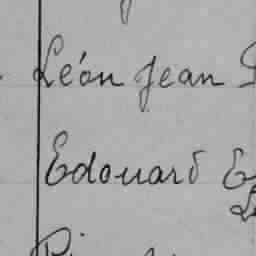 Léon Jean
Edouard